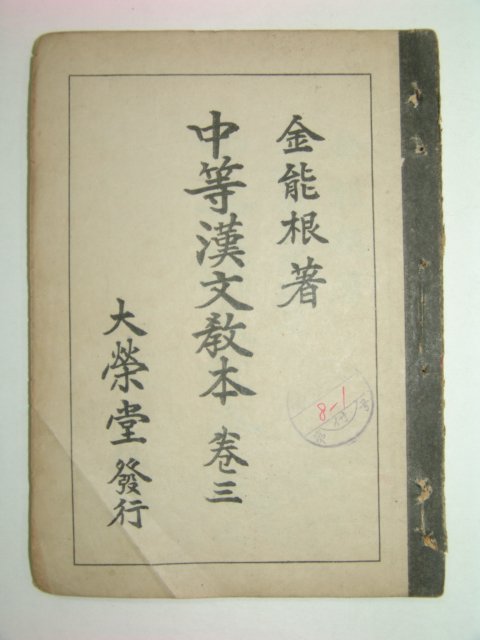 金能根 著
中等漢文教本 卷三
大榮堂 發行
8-1